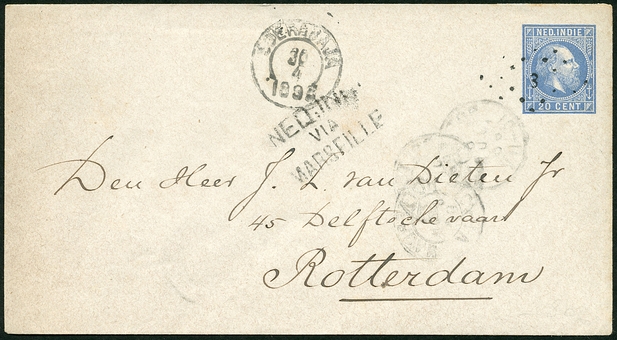 SOERABAJA
30
4
1892
NED. INDIE
3
20 CENT
NED: IND
VIA
MARSEILLE
Den Heer J. L. van Dieten Jr
45 Delftsche vaart
Rotterdam